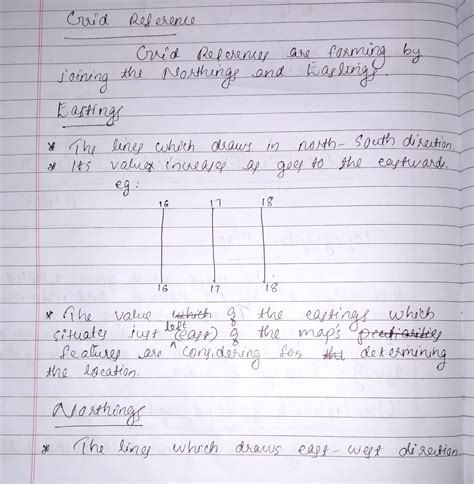 Grid Reference
Grid References are forming by
joining the Northings and Eastings.
Eastings
* The lines which draws in north-south direction.
* Its values increases as goes to the eastwards.
eg:
16 17 18
16 17 18
* The value which of the eastings which
situates just left (east) of the map's peculiarities
features are considering for the determining
the location.
Northings
* The lines which draws east-west direction